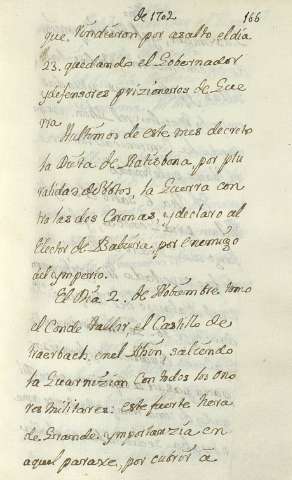 de 1702   166
que Rindieron por asalto, el dia
23. quedando el Gobernador
y defensores prizioneros de Gue
rra
Aultimos de este mes decreto
la Dieta de Ratisbona por plu
ralidad de Botos, la Guerra con
tra las dos Coronas, y declaro al
Elector de Babiera, por enemigo
del ymperio.
El Dia 2. de Nobiembre tomo
el Conde
el Castillo de
en el Rhin, saliendo
la Guarnizion con todos los ono
res militares: este fuerte hera
de Grande ymportanzia en
aquel paraxe, por cubrir a